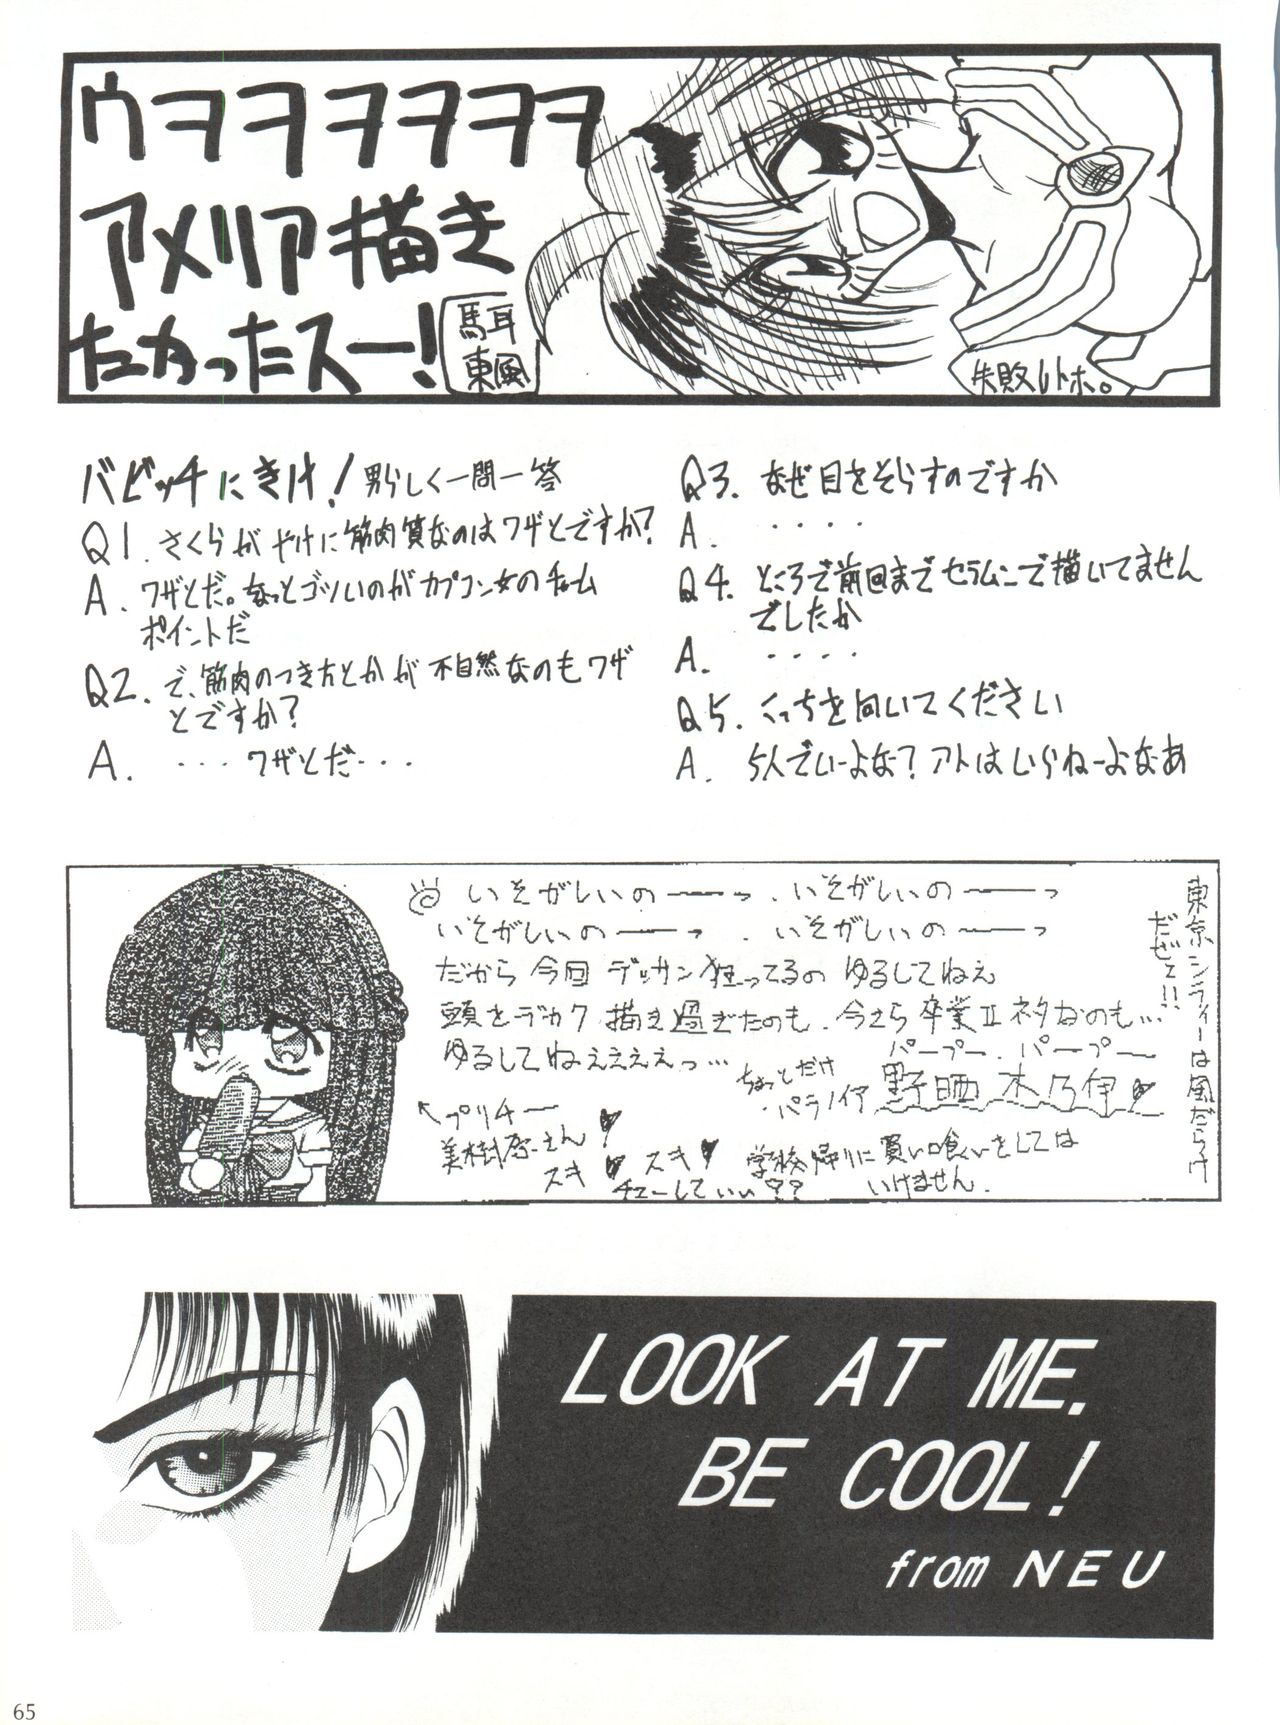 ウヲヲヲヲヲヲ
アメリア描き
たかったスー!
馬耳
東風
失敗しトホ。
バビッチにきけ! 男らしく一問一答
Q1. さくらがやけに筋肉質なのはワザとですか?
A. ワザとだ。ちょっとゴツいのがカプコン女のチャーム
ポイントだ
Q2. で、筋肉のつき方とかが不自然なのもワザ
とですか?
A. ・・・ワザとだ・・・
Q3. なぜ目をそらすのですか
A. ・・・・
Q4. ところで前回までセラムンで描いてません
でしたか
A. ・・・・
Q5. こっちを向いてください
A. 5人でいーよな? アトはいらねーよなあ
いそがしいの――っ. いそがしいの――っ
いそがしいの――っ. いそがしいの――っ
だから今回デッサン狂ってるの ゆるしてねぇ
頭をデカク描き過ぎたのも. 今さら卒業Ⅱネタなのも...
ゆるしてねぇぇぇぇっ...
パープー. パープー
ちょっとだけ
・パラノイア
野晒 木乃伊
←プリチー
美樹原さん
スキ スキ
チューしてい〜??
学校帰りに買い喰いをしては
いけません.
東京シティーは風だらけ
だぜてい..
LOOK AT ME.
BE COOL!
from NEU
65